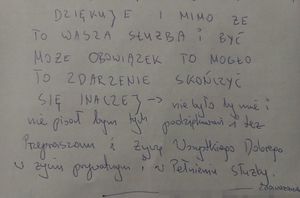 DZIĘKUJE I MIMO ŻE
TO WASZA SŁUŻBA i BYĆ
MOŻE OBOWIĄZEK TO MOGŁO
TO ZDARZENIE SKOŃCZYĆ
SIĘ INACZEJ → nie było by mnie i
nie pisał bym tych podziękowań i też
Przepraszam i życzę Wszystkiego Dobrego
w życiu prywatnym i w Pełnieniu służby.